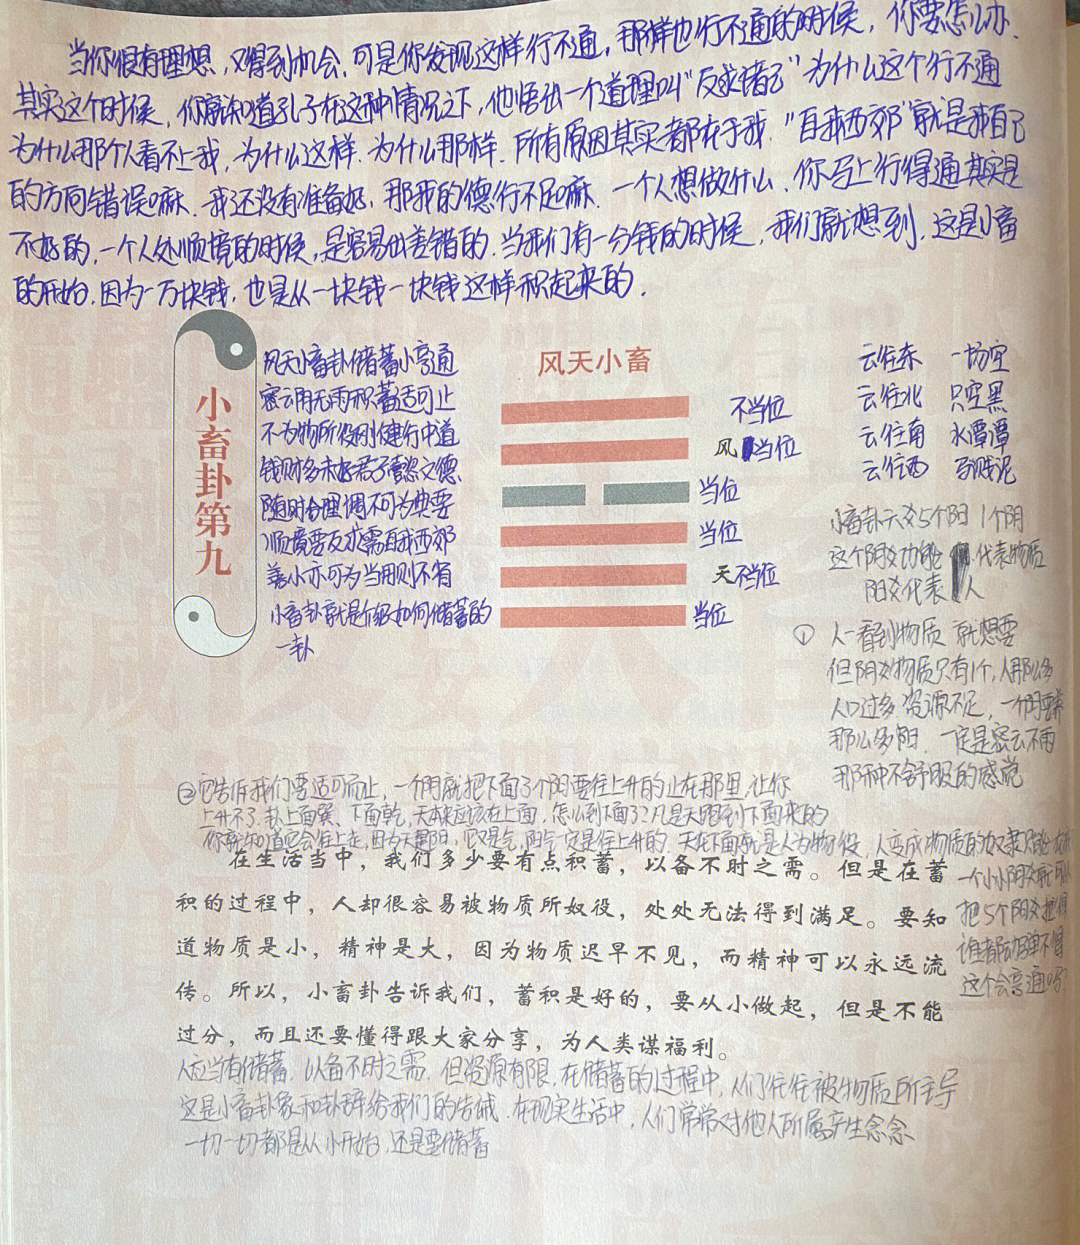 当你很有理想，又得到机会，可是你发现这样行不通，那样也行不通的时候，你要怎么办、
其实这个时候，你就知道孔子在这种情况之下，他悟出一个道理叫“反求诸己”为什么这个行不通
为什么那个人看不上我，为什么这样、为什么那样，所有原因其实都在于我，“自我西郊”就是我自己
的方向错误嘛、我还没有准备好，那我的德行不足嘛、一个人想做什么、你马上行得通其实是
不好的，一个人处顺境的时候，是容易出差错的、当我们有一分钱的时候，我们就想到、这是小畜
的开始、因为一万块钱，也是从一块钱一块钱这样积起来的．
小畜卦第九
风天小畜卦储蓄小亨通
密云用无雨积蓄适可止
不为物所役刚健行中道
钱财多未好君子懿文德
随时合理调不可为典要
顺境要反求需自我西郊
善小亦可为当用则不省
小畜卦就是介绍如何储蓄的
一卦
风天小畜
不当位
风 当位
当位
当位
天不当位
当位
云往东 一场空
云往北 只空黑
云往南 水潭潭
云往西 马贱泥
小畜卦六爻5个阳 1个阴
这个阴爻功能 代表物质
阳爻代表 人
① 人一看到物质 就想要
但阴爻物质只有1个，人那么多
人口过多 资源不足，一个阴要养
那么多阳．一定是密云不雨
那种不舒服的感觉
②它告诉我们要适可而止，一个阴就把下面3个阳要往上升的止在那里，让你
上升不了、卦上面巽、下面乾，天本来应该在上面，怎么到下面了？凡是天跑到下面来的
你就知道它会往上走，因为天是阳，它又是气，阳气一定是往上升的、天在下面就是人为物役，人变成物质的奴隶
一个小小阴爻就可以
把5个阴爻把得
谁都动弹不得
这个会亨通吗？
在生活当中，我们多少要有点积蓄，以备不时之需。但是在蓄
积的过程中，人却很容易被物质所奴役，处处无法得到满足。要知
道物质是小，精神是大，因为物质迟早不见，而精神可以永远流
传。所以，小畜卦告诉我们，蓄积是好的，要从小做起，但是不能
过分，而且还要懂得跟大家分享，为人类谋福利。
人应当有储蓄，以备不时之需，但资源有限，在储蓄的过程中，人们往往被物质所主导
这是小畜卦象和卦辞给我们的告诫、在现实生活中，人们常常对他人所属产生念念
一切一切都是从小开始，还是要储蓄